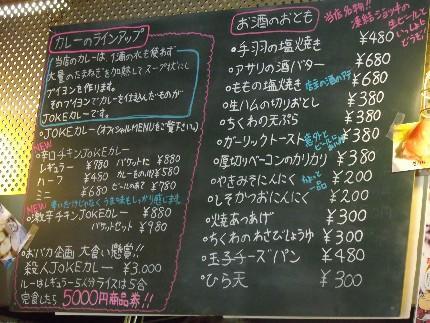 カレーのラインアップ
当店のカレーは、1滴の水も使わず
大量のたまねぎを加熱してスープ状にし
ブイヨンを作ります。
そのブイヨンでカレーを仕込んだものが
JOKEカレーです。
・JOKEカレー(オフィシャルMENUをご覧下さい)
NEW
・辛口チキンJOKEカレー
レギュラー ¥780 バケットに ¥880
ハーフ ¥450 カレーをのせ ¥580
ミニ ¥680 ビールのあて ¥780
NEW 辛いだけじゃなくうま味もしっかり感じます
・激辛チキンJOKEカレー ¥880
バケットセット ¥980
・おバカ企画 大食い懸賞!!
殺人JOKEカレー ¥3.000
ルーはレギュラー5人分ライスは5合
完食したら5000円商品券!!
お酒のおとも
当店名物!!
凍結ジョッキの
生ビールで
いっぱい
どうぞ!
・手羽の塩焼き ¥480
・アサリの酒バター ¥680
・ももの塩焼き 店主の酒のアテ ¥680
・生ハムの切りおとし ¥380
・ちくわの天ぷら ¥380
・ガーリックトースト ¥380
・厚切りベーコンのカリカリ ¥380
・やきみそにんにく ちょっと一品 ¥200
・しそかつおにんにく ¥200
・焼あつあげ ¥300
・ちくわのわさびじょうゆ ¥300
・玉子チーズパン ¥480
・ひら天 ¥300